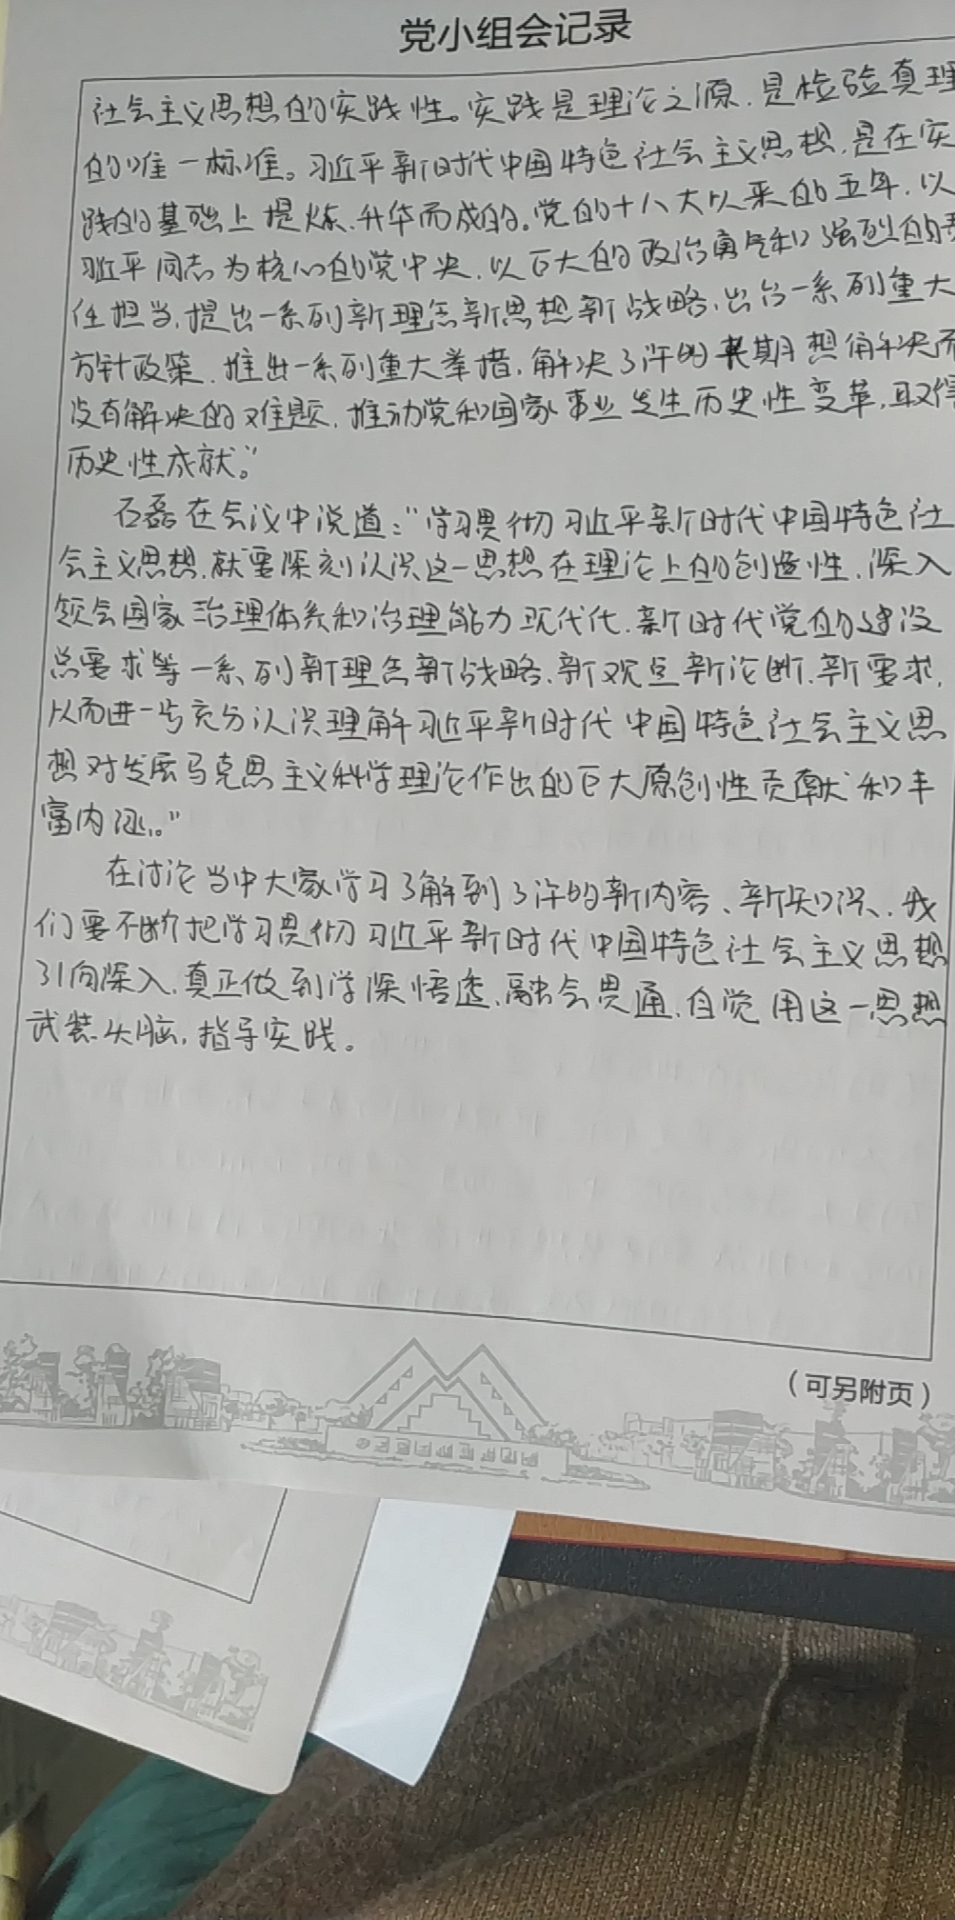 党小组会记录
社会主义思想的实践性。实践是理论之源，是检验真理
的唯一标准。习近平新时代中国特色社会主义思想，是在实
践的基础上提炼、升华而成的。党的十八大以来的五年，以
习近平同志为核心的党中央，以巨大的政治勇气和强烈的责
任担当，提出一系列新理念新思想新战略，出台一系列重大
方针政策，推出一系列重大举措，解决了许多长期想解决而
没有解决的难题，推动党和国家事业发生历史性变革，取得
历史性成就。”
石磊在会议中说道：“学习贯彻习近平新时代中国特色社
会主义思想，就要深刻认识这一思想在理论上的创造性，深入
领会国家治理体系和治理能力现代化、新时代党的建设
总要求等一系列新理念新战略、新观点新论断、新要求，
从而进一步充分认识理解习近平新时代中国特色社会主义思
想对发展马克思主义科学理论作出的巨大原创性贡献和丰
富内涵。”
在讨论当中大家学习了解到了许多新内容、新知识、我
们要不断把学习贯彻习近平新时代中国特色社会主义思想
引向深入，真正做到学深悟透、融会贯通，自觉用这一思想
武装头脑，指导实践。
（可另附页）